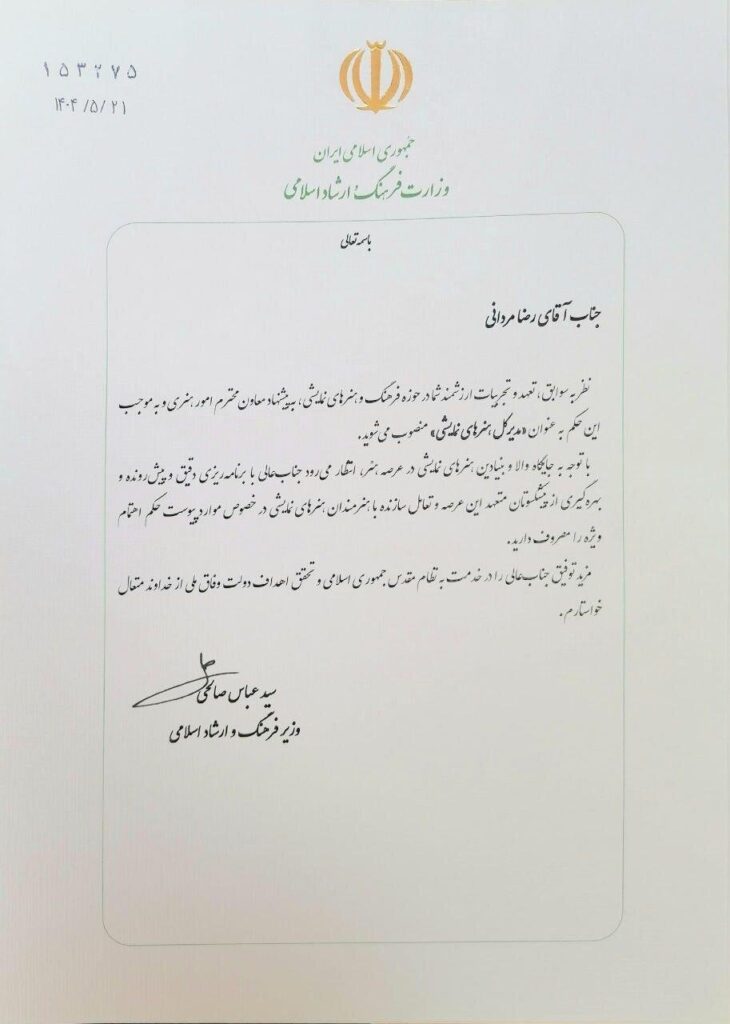 ۱۵۳۲۷۵
۱۴۰۴/۵/۲۱
جمهوری اسلامی ایران
وزارت فرهنگ و ارشاد اسلامی
باسمه تعالی
جناب آقای رضا مردانی
نظر به سوابق، تعهد و تجربیات ارزشمند شما در حوزه فرهنگ و هنرهای نمایشی، به پیشنهاد معاون محترم امور هنری و به موجب
این حکم به عنوان «مدیرکل هنرهای نمایشی» منصوب می‌شوید.
با توجه به جایگاه والا و بنیادین هنرهای نمایشی در عرصه هنر، انتظار می‌رود جناب‌عالی با برنامه‌ریزی دقیق و پیش‌رونده و
بهره‌گیری از پیشکسوتان متعهد این عرصه و تعامل سازنده با هنرمندان هنرهای نمایشی در خصوص موارد پیوست حکم اهتمام
ویژه را مصروف دارید.
مزید توفیق جناب‌عالی را در خدمت به نظام مقدس جمهوری اسلامی و تحقق اهداف دولت وفاق ملی از خداوند متعال
خواستارم.
سید عباس صالحی
وزیر فرهنگ و ارشاد اسلامی